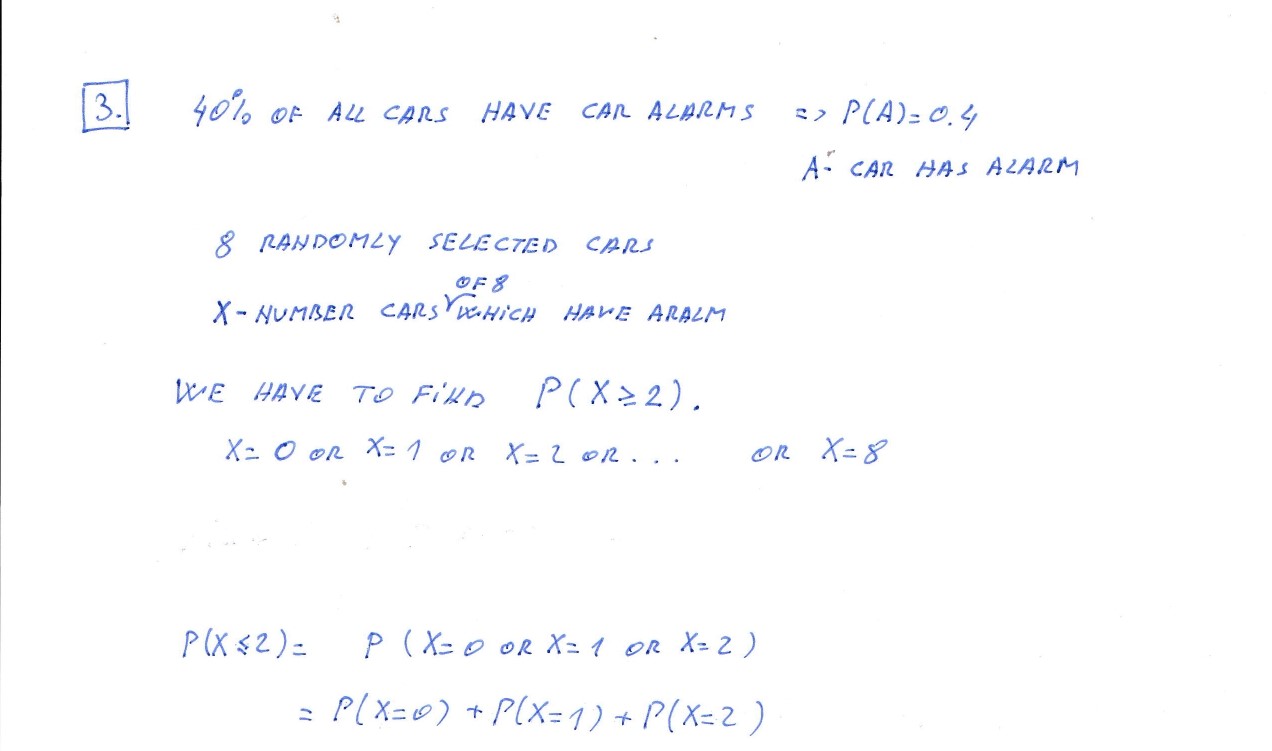 3. 40% OF ALL CARS HAVE CAR ALARMS => P(A)=0.4
A- CAR HAS ALARM
8 RANDOMLY SELECTED CARS
OF 8
X- NUMBER CARS WHICH HAVE ARALM
WE HAVE TO FIND P(X≥2).
X=0 OR X=1 OR X=2 OR... OR X=8
P(X≤2)= P(X=0 OR X=1 OR X=2)
= P(X=0) + P(X=1) + P(X=2)